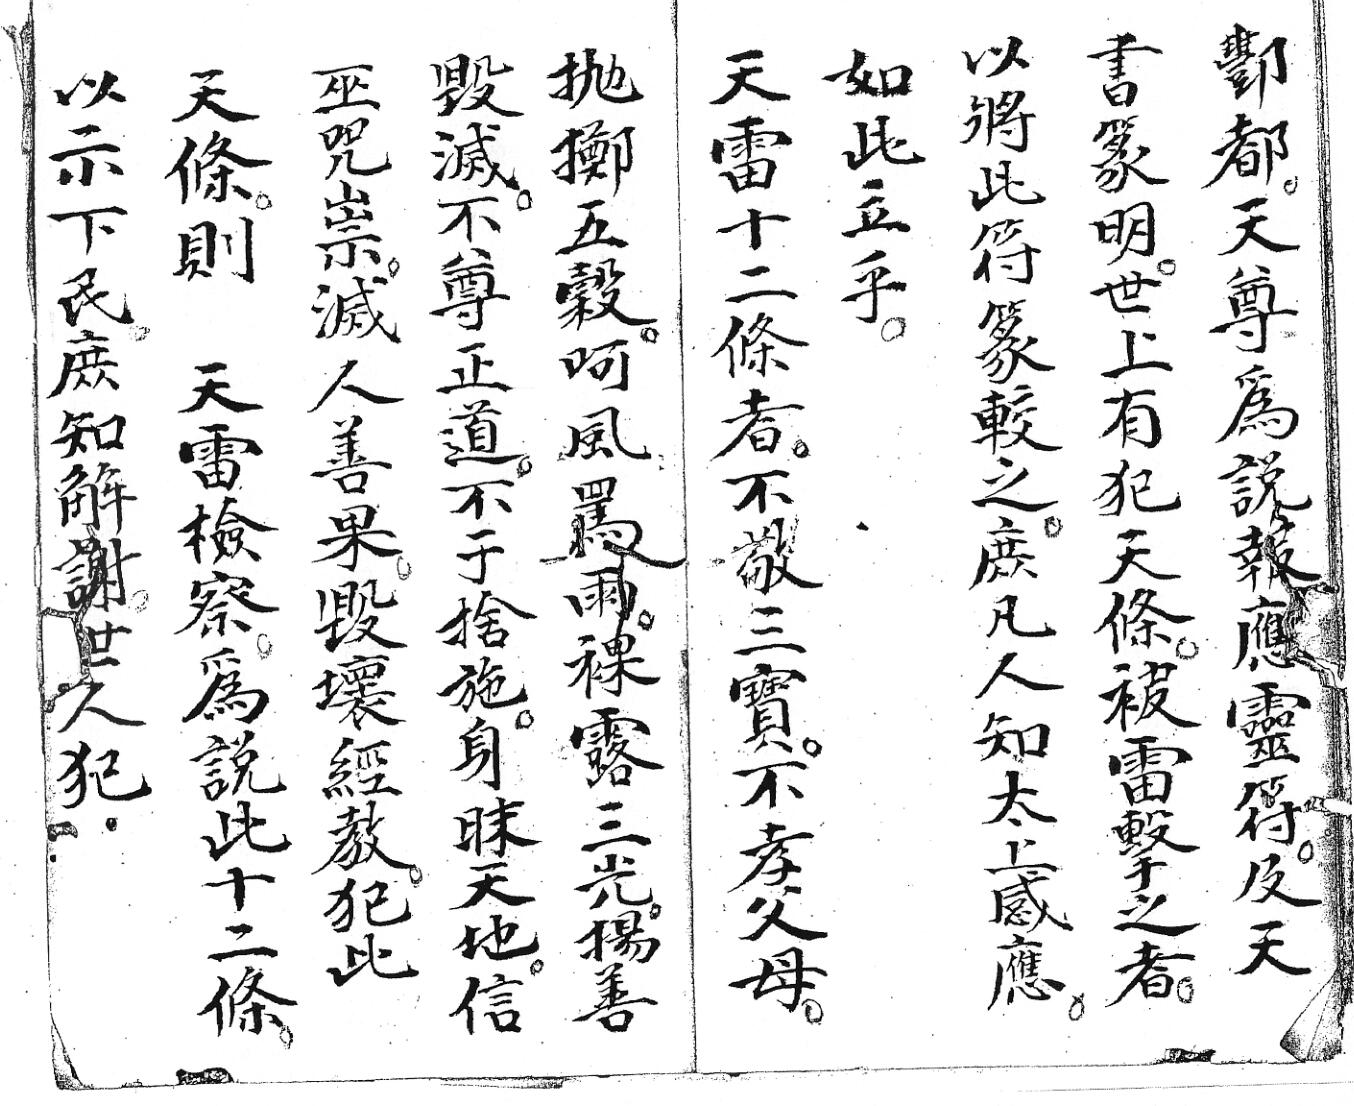 酆都。天尊爲説報應靈符。及天
書篆明。世上有犯天條。被雷擊之者。
以將此符篆較之。庶凡人知太上感應。
如此立乎。
天雷十二條者。不敬三寶。不孝父母。
抛擲五穀。呵風罵雨。裸露三光。揚善
毀滅。不尊正道。不于捨施。身昧天地。信
巫咒祟。滅人善果。毀壞經教。犯此
天條。則　天雷檢察。爲説此十二條。
以示下民。庶知解謝。世人犯。